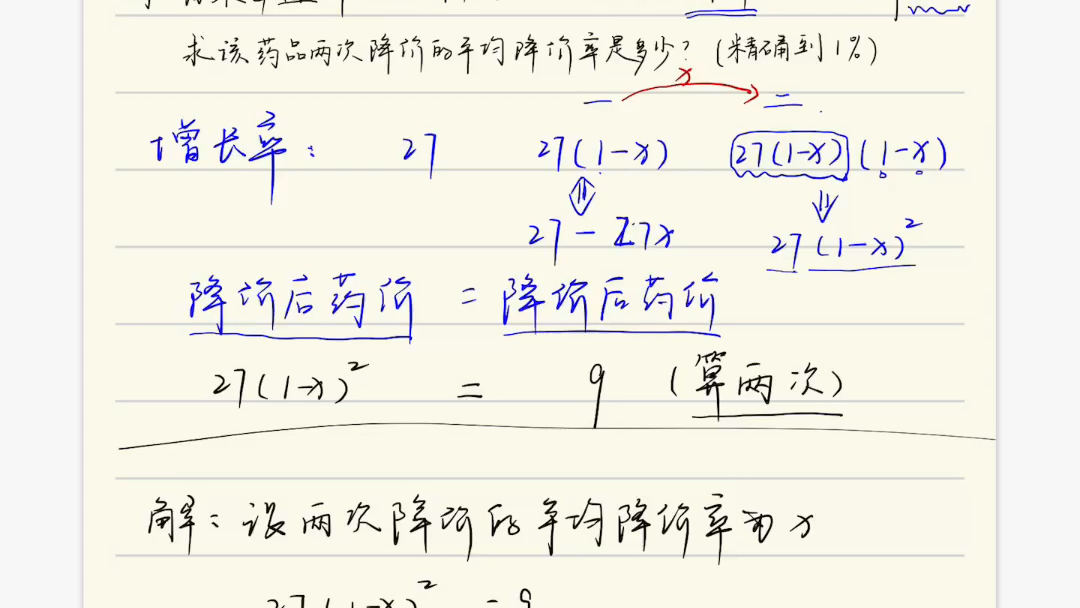 求该药品两次降价的平均降价率是多少？(精确到1%)
x
一 二
增长率： 27 27(1-x) 27(1-x)(1-x)
27-27x 27(1-x)²
降价后药价 = 降价后药价
27(1-x)² = 9 (算两次)
解：设两次降价的平均降价率为x
27(1-x)² = 9